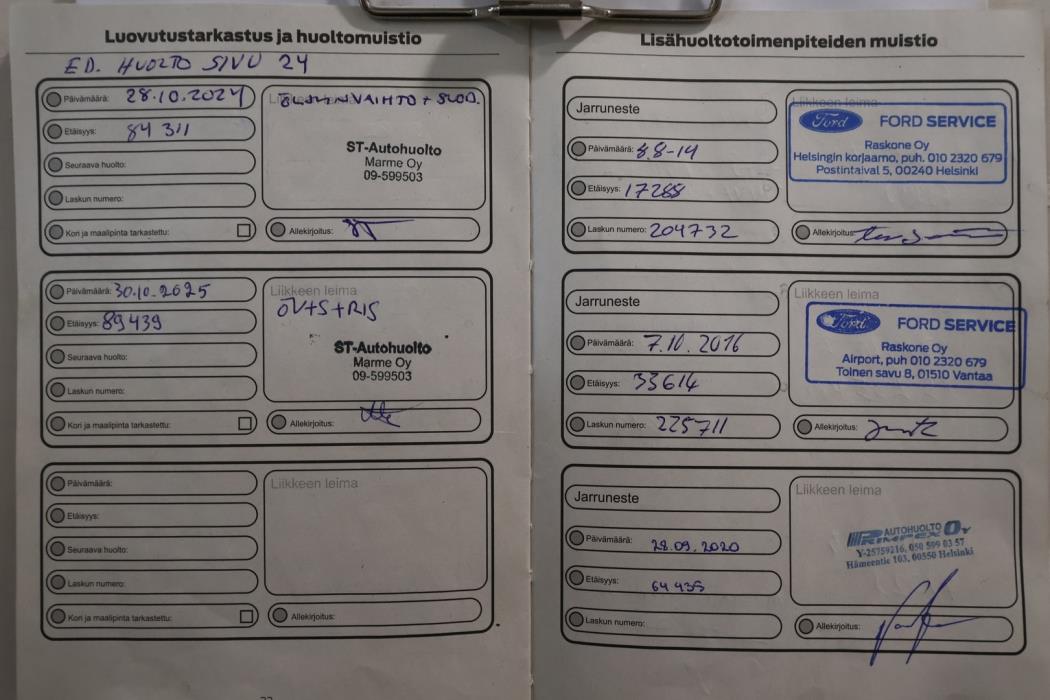 Luovutustarkastus ja huoltomuistio
ED. HUOLTO SIVU 24
Päivämäärä: 28.10.2024
Etäisyys: 84 311
Seuraava huolto:
Laskun numero:
Kori ja maalipinta tarkastettu:
ÖLJYNVAIHTO + SUOD.
ST-Autohuolto
Marme Oy
09-599503
Allekirjoitus:
Päivämäärä: 30.10.2025
Etäisyys: 89 439
Seuraava huolto:
Laskun numero:
Kori ja maalipinta tarkastettu:
Liikkeen leima
ÖV+S+RIS
ST-Autohuolto
Marme Oy
09-599503
Allekirjoitus:
Päivämäärä:
Etäisyys:
Seuraava huolto:
Laskun numero:
Kori ja maalipinta tarkastettu:
Liikkeen leima
Allekirjoitus:
Lisähuoltotoimenpiteiden muistio
Jarruneste
Päivämäärä: 8.8-14
Etäisyys: 17288
Laskun numero: 204732
Liikkeen leima
Ford FORD SERVICE
Raskone Oy
Helsingin korjaamo, puh. 010 2320 679
Postintaival 5, 00240 Helsinki
Allekirjoitus:
Jarruneste
Päivämäärä: 7.10.2016
Etäisyys: 33614
Laskun numero: 225711
Liikkeen leima
Ford FORD SERVICE
Raskone Oy
Airport, puh 010 2320 679
Toinen savu 8, 01510 Vantaa
Allekirjoitus:
Jarruneste
Päivämäärä: 28.09.2020
Etäisyys: 64 435
Laskun numero:
Liikkeen leima
AUTOHUOLTO
RIMPEX Oy
Y-25759216, 050 599 03 57
Hämeentie 103, 00550 Helsinki
Allekirjoitus: